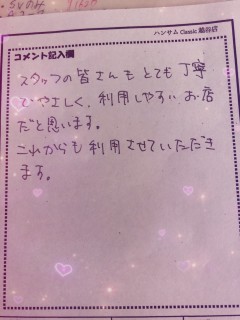 ・SVのみ
ハンサム Classic 越谷店
コメント記入欄
スタッフの皆さんもとても丁寧
でやさしく、利用しやすいお店
だと思います。
これからも利用させていただき
ます。